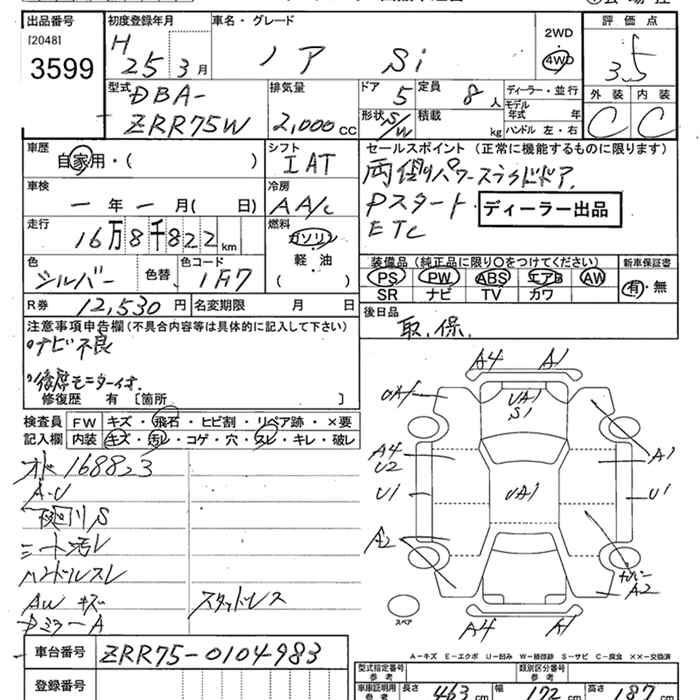 出品番号 初度登録年月 車名・グレード 2WD 評価点
[2048] H 25 3月 ノア Si 4WD 3.5
3599
型式 排気量 ドア 定員 ディーラー・並行 外装 内装
DBA- 5 8人 モデル年式 年 C C
ZRR75W 2,000 CC 形状 S/W 積載 kg ハンドル 左・右
車歴 シフト セールスポイント (正常に機能するものに限ります)
自家用・( ) IAT 両側パワースライドドア
車検 冷房 Pスタート ディーラー出品
ー年ー月( 日) AA/c ETC
走行 燃料
16万8千822km ガソリン 装備品 (純正品に限り○をつけてください) 新車保証書
色 色替 色コード 軽・油 PS PW ABS エアB AW 有・無
シルバー 1F7 ( ) SR ナビ TV カワ
R券 12,530円 名変期限 月 日 後日品
取.保.
注意事項申告欄 (不具合内容等は具体的に記入して下さい)
ナビ不良
後席モニター
修復歴 有 [箇所 ]
検査員 FW キズ・飛石・ヒビ割・リペア跡・×要
記入欄 内装 キズ・汚レ・コゲ・穴・スレ・キレ・破レ
168823
A・U
下廻りS
シート汚レ
ハンドルスレ
AW キズ スタッドレス
ミラーA
A4 A1
UA1
S1
A4 A1
U2
U1 UA1 U1
A2
A2
スペア
A4 A1
車台番号 ZRR75-0104983
登録番号
A-キズ E-エクボ U-凹み W-補修跡 S-サビ C-腐食 XX-交換済
型式指定番号 参考 類別区分番号 参考
車庫証明用 参考 長さ 463 cm 幅 172 cm 高さ 187 cm